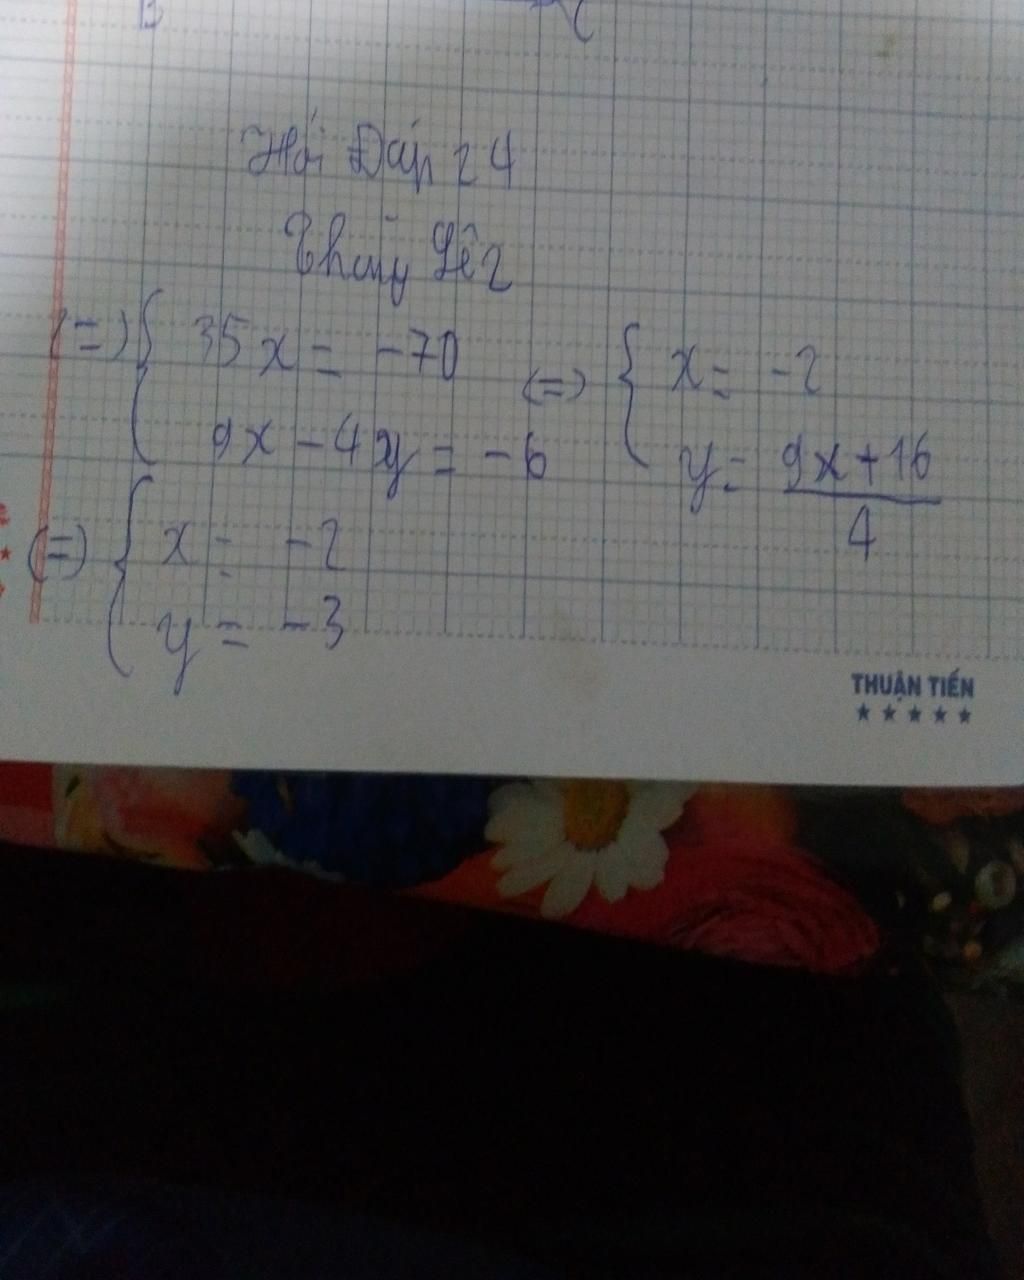 Hỏi Đáp 24
Thùy Lê 2
(=) { 35x = -70 (=) { x = -2
9x - 4y = -6 y = 9x+16
4
(=) { x = -2
y = -3
THUẬN TIẾN